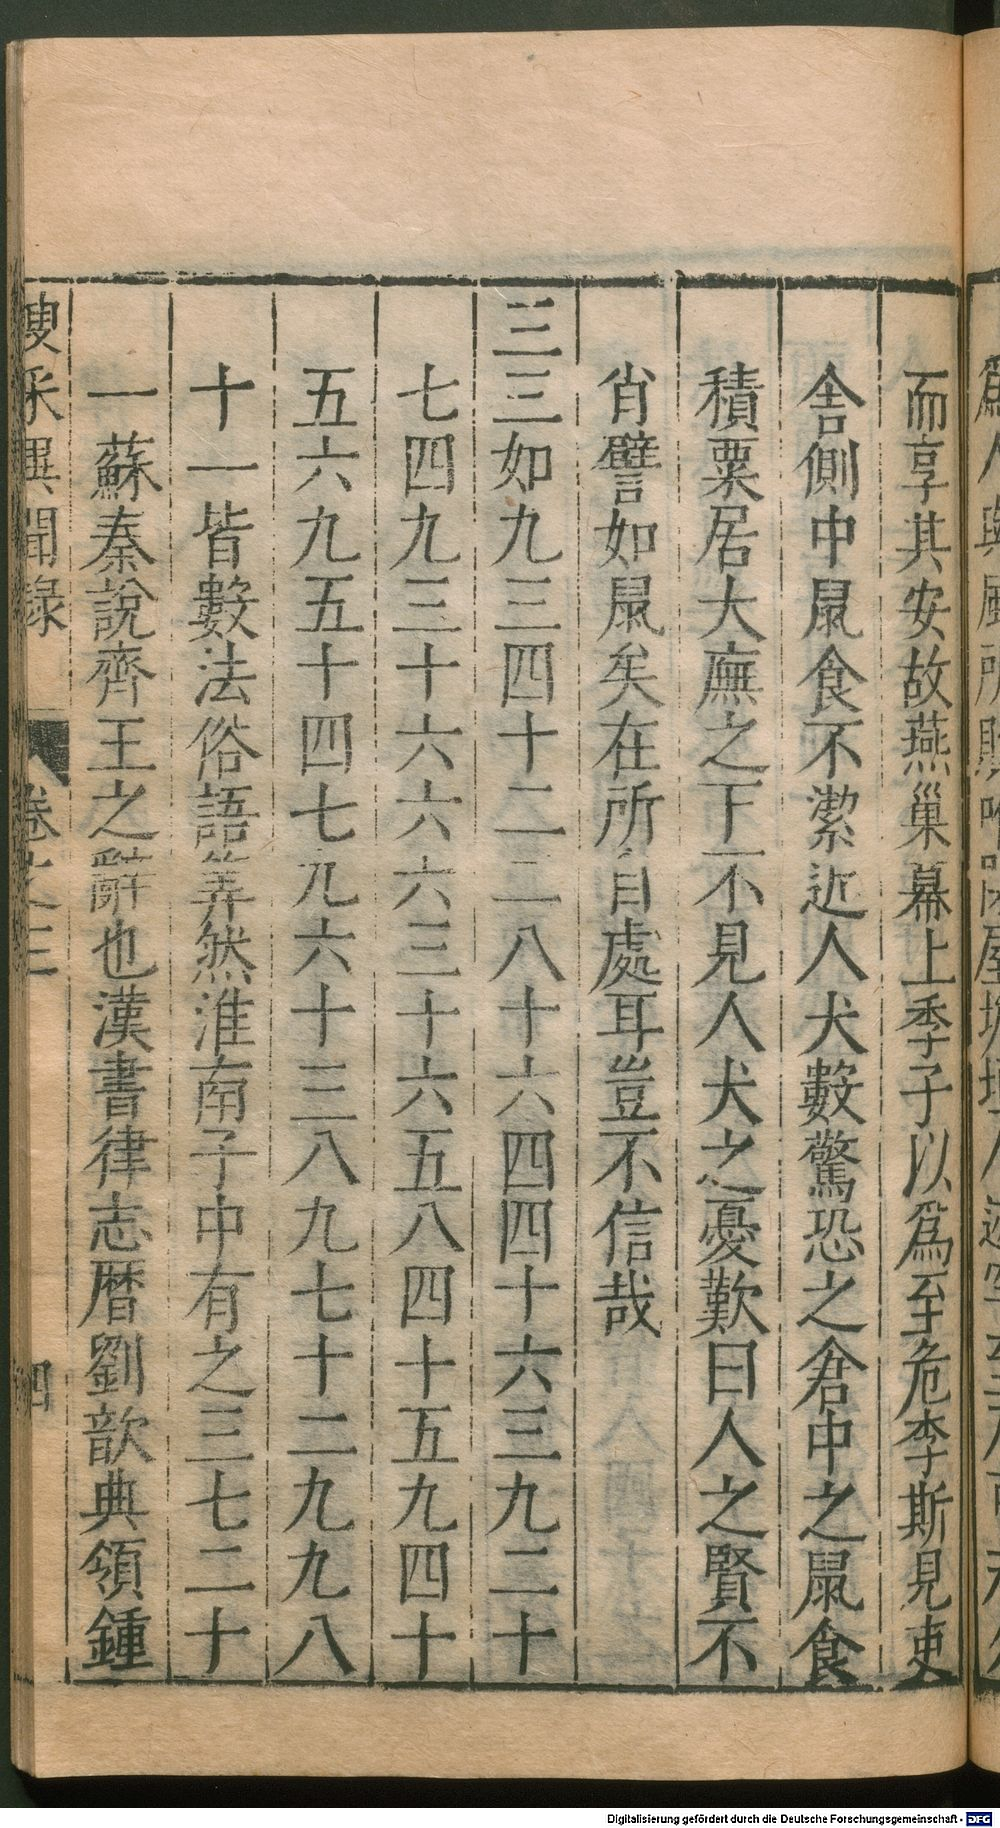 而享其安故燕巢幕上季子以為至危李斯見吏
舍側中鼠食不潔近人犬數驚恐之倉中之鼠食
積粟居大廡之下不見人犬之憂歎曰人之賢不
肖譬如鼠矣在所自處耳豈不信哉
三三如九三四十二二八十六四四十六三九二十
七四九三十六六六三十六五八四十五九四十
五六九五十四七九六十三八九七十二九九八
十一皆數法俗語筭然淮南子中有之三七二十
一蘇秦說齊王之辭也漢書律志曆劉歆典領鍾
搜采異聞錄 卷之三 四
Digitalisierung gefördert durch die Deutsche Forschungsgemeinschaft - DFG